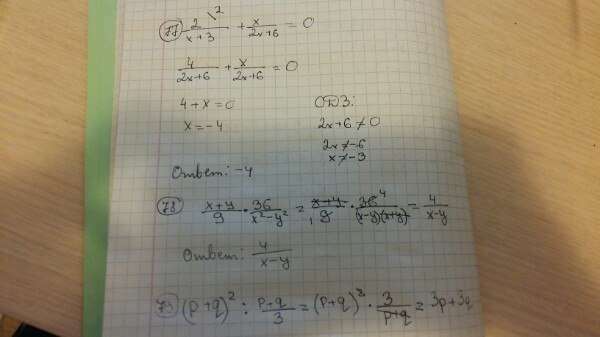 77) 2\² / (x+3) + x / (2x+6) = 0
4 / (2x+6) + x / (2x+6) = 0
4 + x = 0
x = -4
ОДЗ:
2x+6 ≠ 0
2x ≠ -6
x ≠ -3
Ответ: -4
78) (x+y) / 9 · 36 / (x²-y²) = (x+y) / 9 · 36 4 / ((x-y)(x+y)) = 4 / (x-y)
Ответ: 4 / (x-y)
79) (p+q)² : (p+q) / 3 = (p+q)² · 3 / (p+q) = 3p+3q